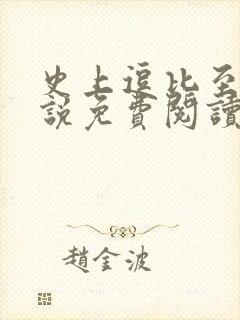 史上逗比至
說免費閱讀
趙金波